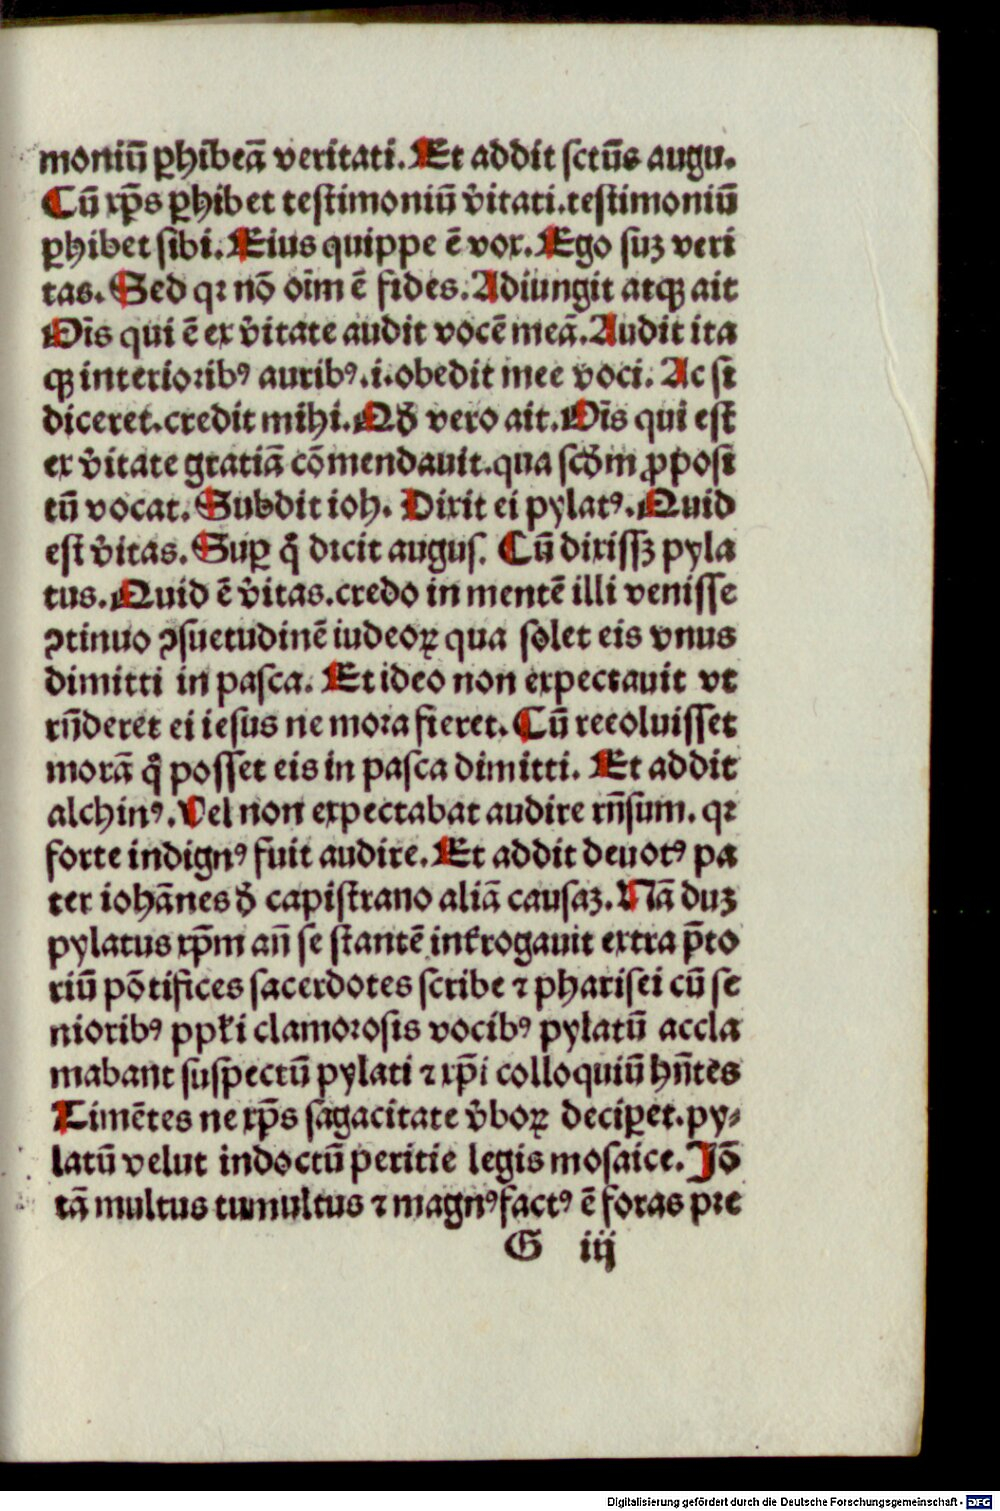 moniū ꝑhibeā veritati. Et addit sctūs augu.
Cū xp̄s ꝑhibet testimoniū v̓itati. testimoniū
ꝑhibet sibi. Eius quippe ē vox. Ego suꝫ veri
tas. Sed qꝛ nō oīm ē fides. Adiungit atqꝫ ait
Oīs qui ē ex v̓itate audit vocē meā. Audit ita
qꝫ interioꝛibꝰ auribꝰ .i. obedit mee voci. Ac si
diceret. credit mihi. Qđ vero ait. Oīs qui est
ex v̓itate gratiā cōmendauit. qua scđm ꝓposi
tū vocat. Subdit ioh. Dixit ei pylatꝰ. Quid
est v̓itas. Suꝑ q̊ dicit augus. Cū dixissꝫ pyla
tus. Quid ē v̓itas. credo in mentē illi venisse
ꝯtinuo ꝯsuetudinē iudeoꝝ qua solet eis vnus
dimitti in pasca. Et ideo non expectauit vt
rn̄deret ei iesus ne moꝛa fieret. Cū recoluisset
morā q̊ posset eis in pasca dimitti. Et addit
alchinꝰ. Vel non expectabat audire rn̄sum. qꝛ
forte indignꝰ fuit audire. Et addit deuotꝰ pa
ter iohānes đ capistrano aliā causaꝫ. Nā duꝫ
pylatus xp̄m an̄ se stantē int̓rogauit extra p̄to
riū pōtifices sacerdotes scribe ⁊ pharisei cū se
nioribꝰ ppl̓i clamoꝛosis vocibꝰ pylatū accla
mabant suspectū pylati ⁊ xp̄i colloquiū hn̄tes
Timētes ne xp̄s sagacitate v̓boꝝ deciꝑet. py⸗
latū velut indoctū peritie legis mosaice. Iō
tā multus tumultus ⁊ magnꝰ factꝰ ē foras pꝛe
G iij
Digitalisierung gefördert durch die Deutsche Forschungsgemeinschaft - DFG